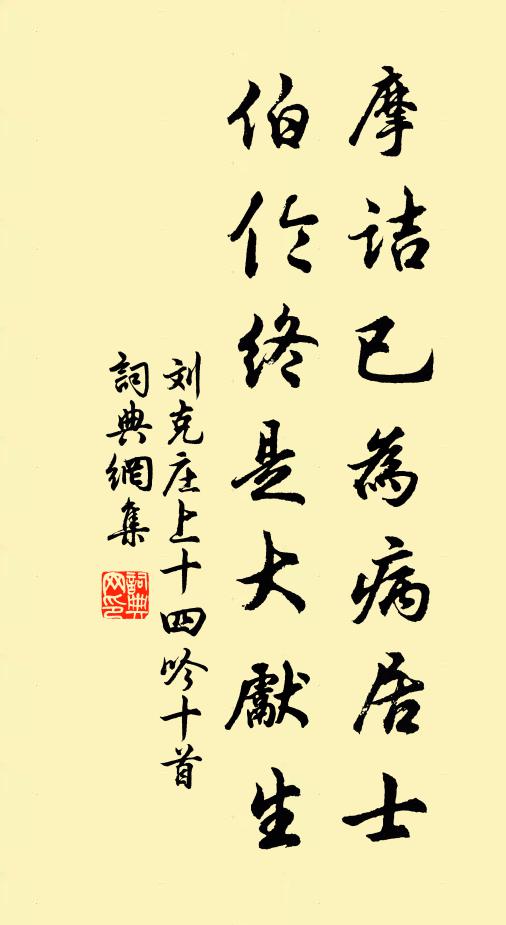 摩詰已為病居士
伯伦終是大獻生
刘克庄上十四吟十首
詞典網集
詞典网印